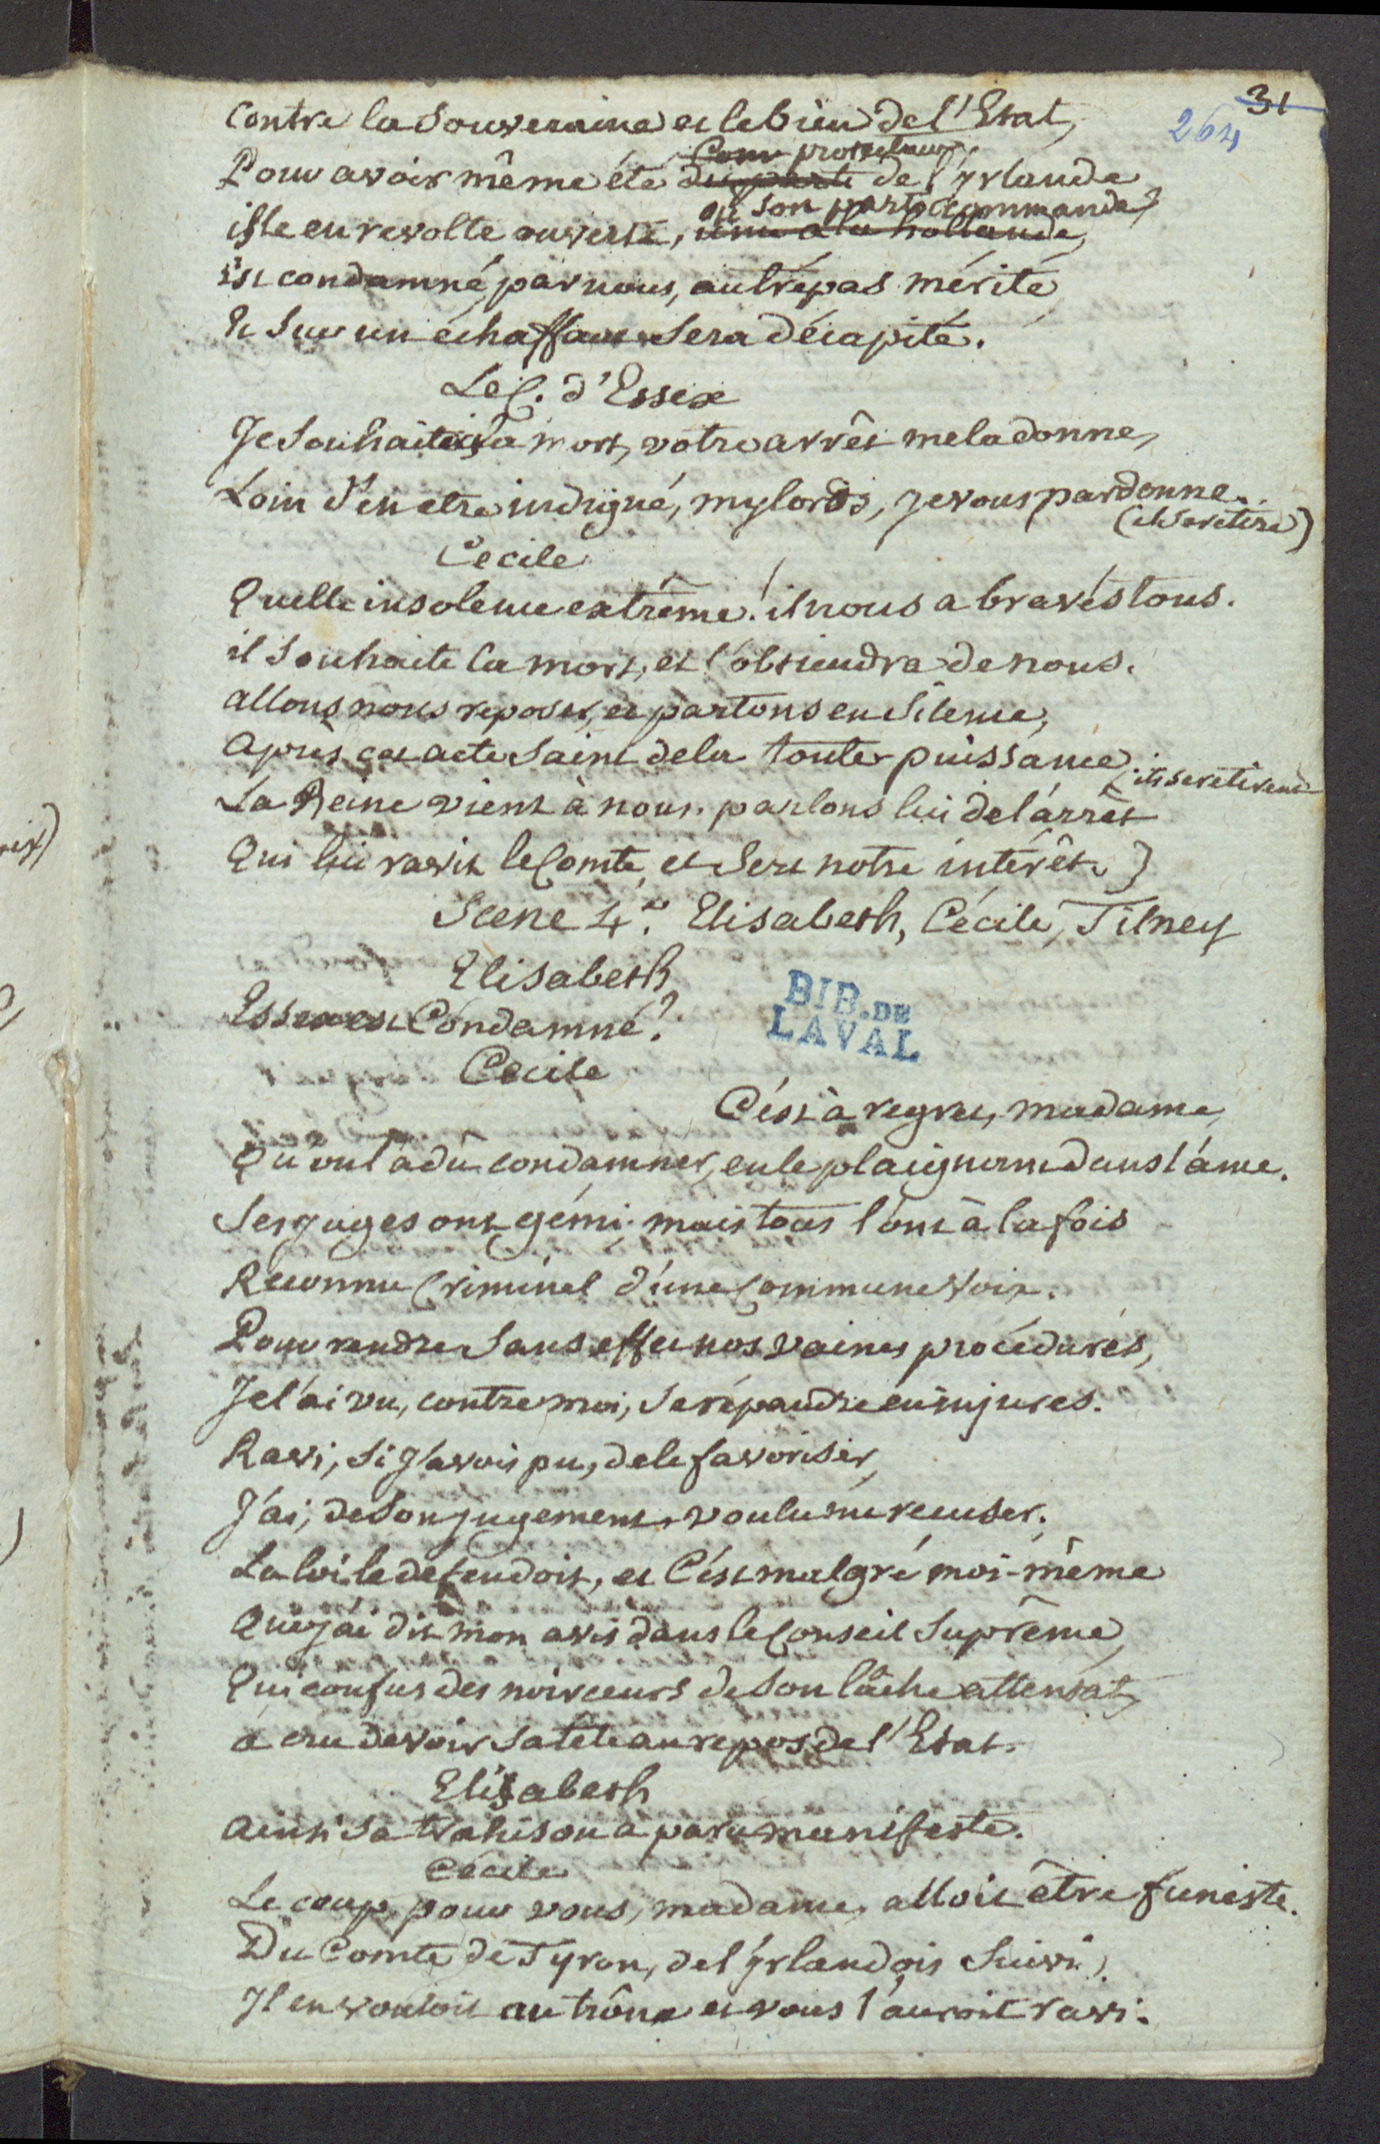 31
264
Contre la Souveraine et le bien de l'Etat,
Com protecteur
Pour avoir même été du parti de l'yrlande
où son parti commande,
isle en revolte ouverte, unie à la hollande,
Est condamné, par nous, au trépas mérité
Et Sur un échaffaut Sera décapité.
Le C. d'Essex
Je Souhaitois la mort, votre arrêt me la donne,
Loin d'en etre indigné, mylords, je vous pardonne.
(il se retire)
Cecile
Quelle insolence extrême! il nous a bravés tous.
il Souhaite la mort, et l'obtiendra de nous.
allons nous reposer, et partons en Silence,
Après cet acte Saint de la toute puissance.
(ils se retirent
La Reine vient à nous. parlons lui de l'arrêt
Qui lui ravit le Comte, et Sert notre intérêt. }
Scene 4.e Elisabeth, Cécile, Tilney
Elisabeth
Essex est Condamné?
BIB. DE
LAVAL
Cecile
C'est à regret, madame,
Qu'on l'a dû condamner, en le plaignant dans l'âme.
Ses juges ont gémi; mais tous l'ont à la fois
Reconnu Criminel d'une Commune Voix.
Pour rendre Sans effet nos vaines procédures,
Je l'ai vu, contre moi, Se répandre en injures.
Ravi, Si j'avois pu, de le favoriser,
J'ai, de Son jugement, voulu me recuser.
La loi le defendoit, et C'est malgré moi-même
Que j'ai dit mon avis dans le Conseil Suprême,
Qui confus des noirceurs de Son lâche attentat,
a cru devoir Sa tête au repos de l'Etat.
Elisabeth
ainsi Sa trahison a paru manifeste.
Cécile
Le coup, pour vous, madame, alloit être funeste.
Du Comte de Tyron, de l'yrlandois Suivi,
Il en vouloit au trône et vous l'auroit ravi.